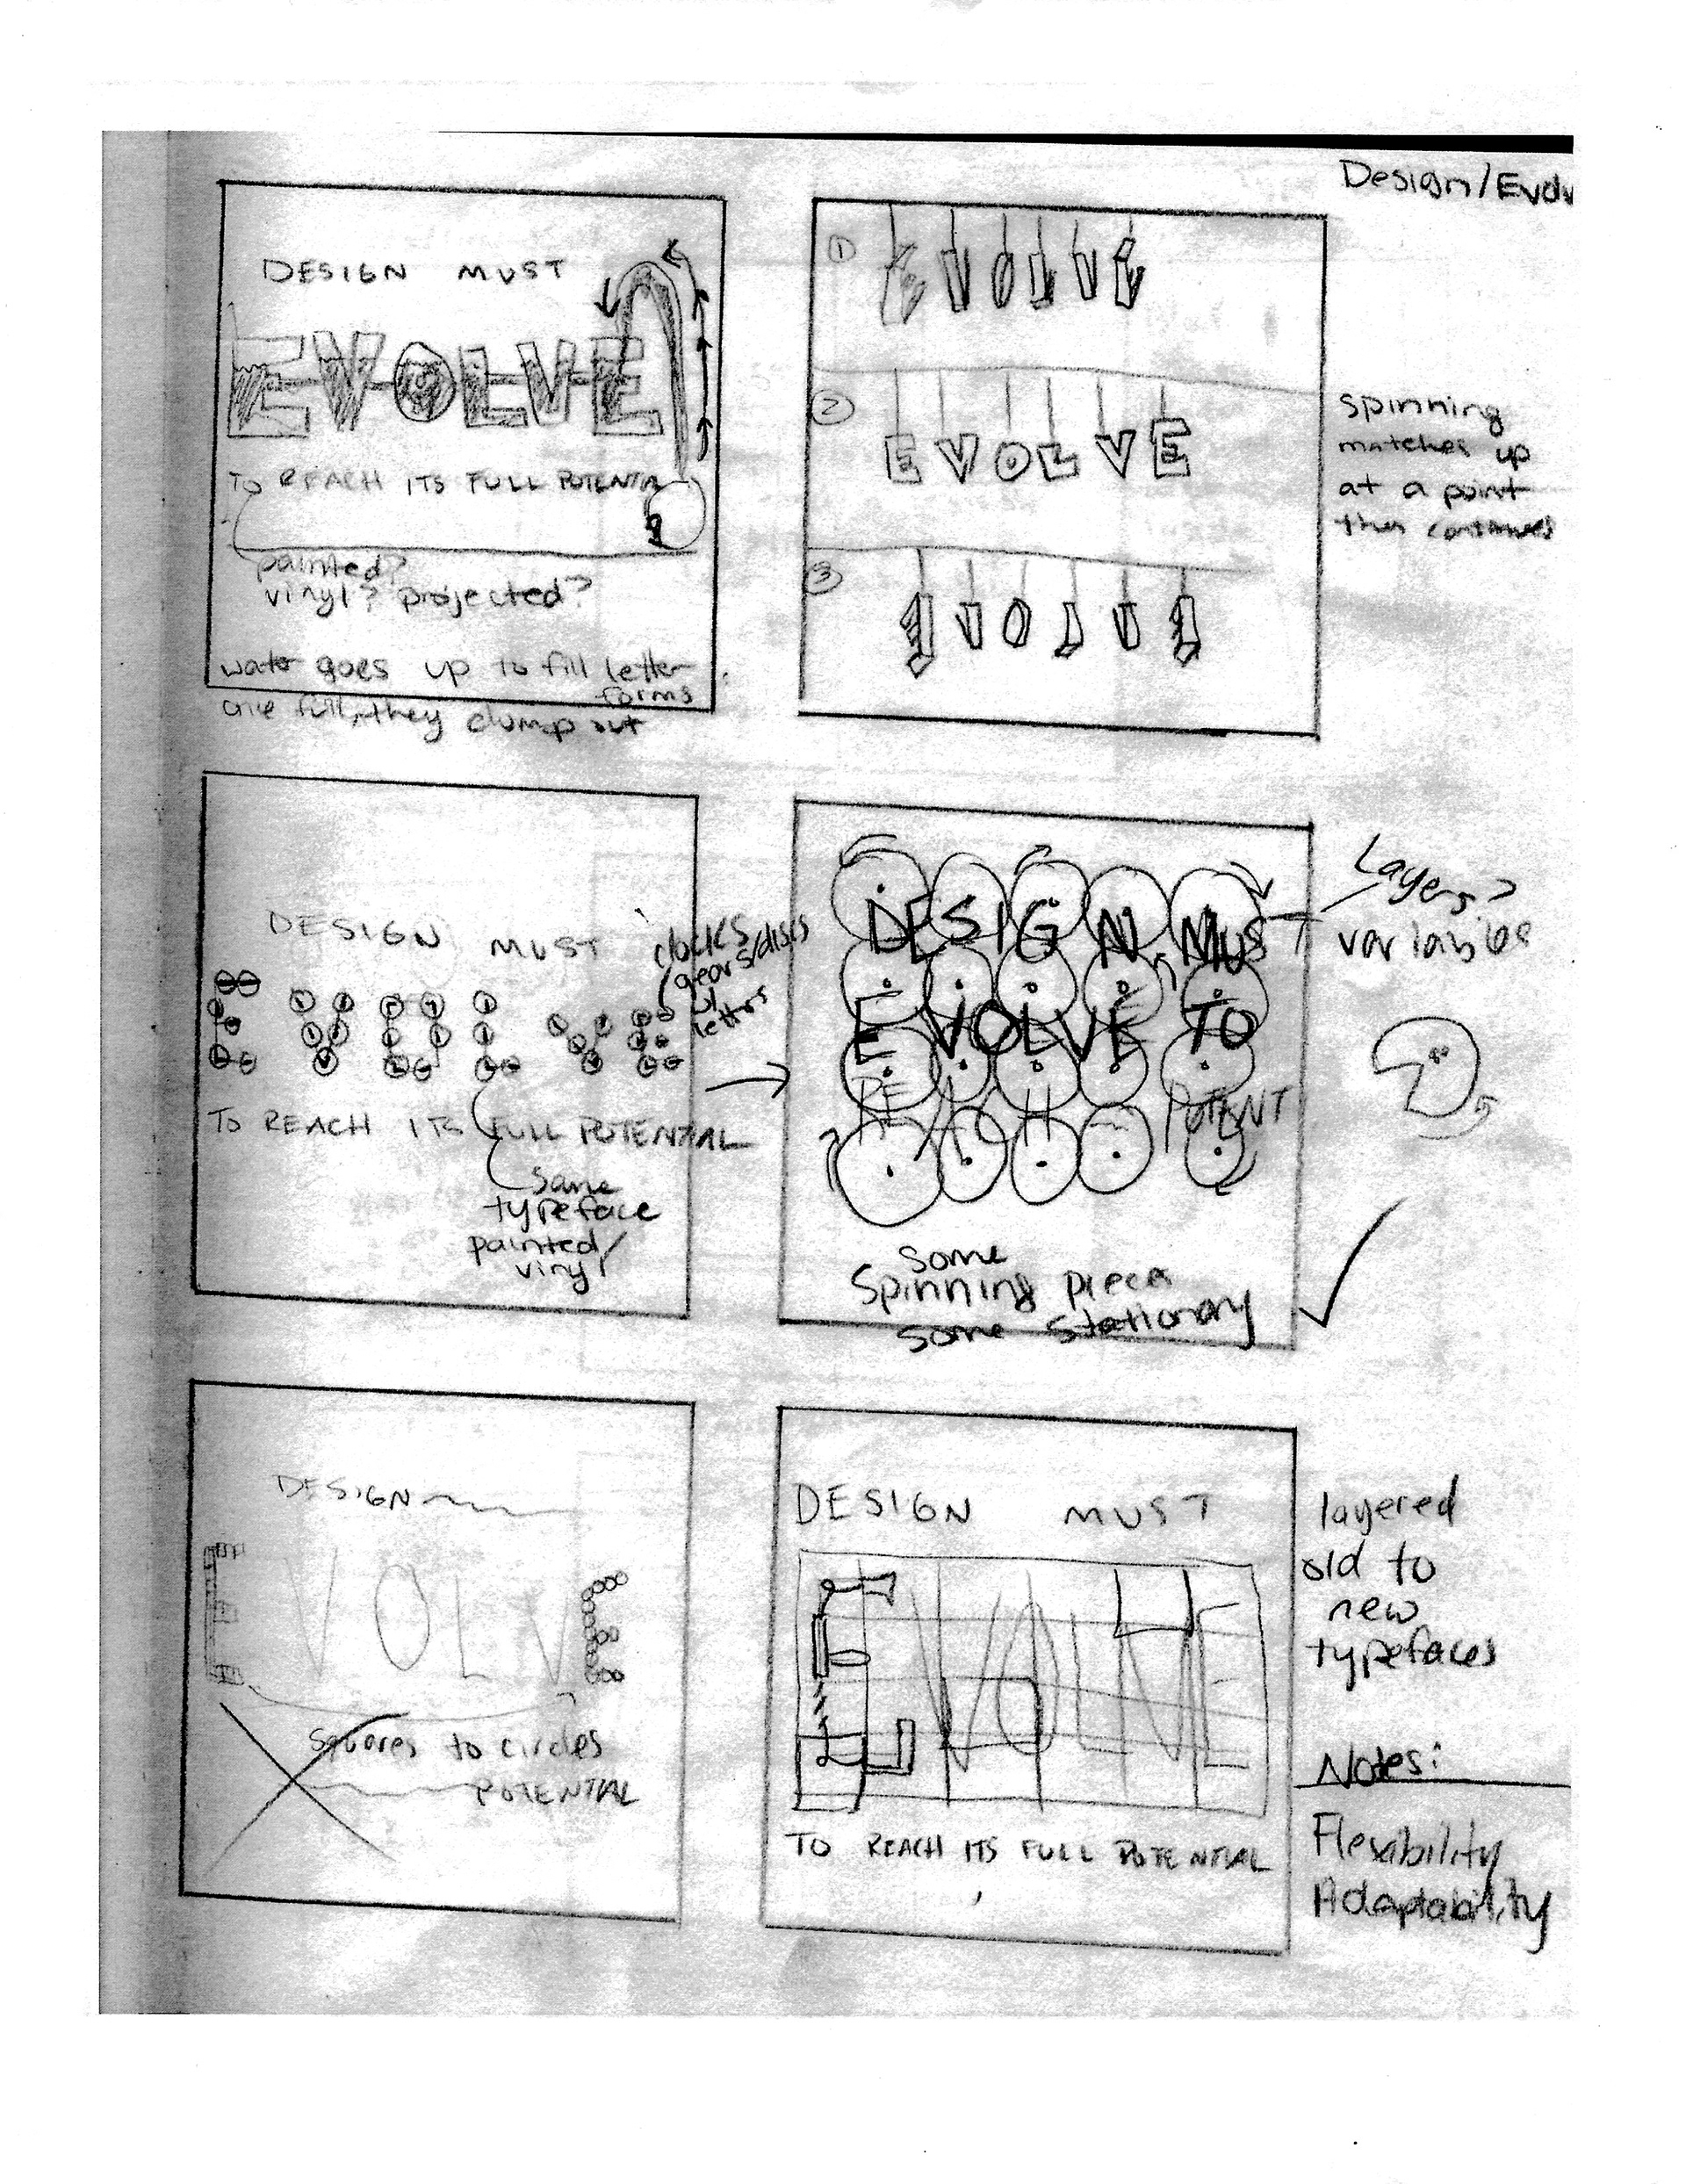 Design/Evolv
DESIGN MUST
EVOLVE
TO REACH ITS FULL POTENTIAL
painted?
vinyl? projected?
water goes up to fill letter
forms
are full, they dump out
1
EVOLVE
2
EVOLVE
3
EVOLVE
spinning
matches up
at a point
then continues
DESIGN MUST
clocks
gears/discs
w/
letters
EVOLVE
TO REACH ITS FULL POTENTIAL
same
typeface
painted/
vinyl
DESIGN MUS
EVOLVE TO
REACH POTENT
some
spinning piece
some stationary
Layers?
variables
DESIGN
EVOLVE
squares to circles
POTENTIAL
DESIGN MUST
EVOLVE
TO REACH ITS FULL POTENTIAL
layered
old to
new
typefaces
Notes:
Flexibility
Adaptability